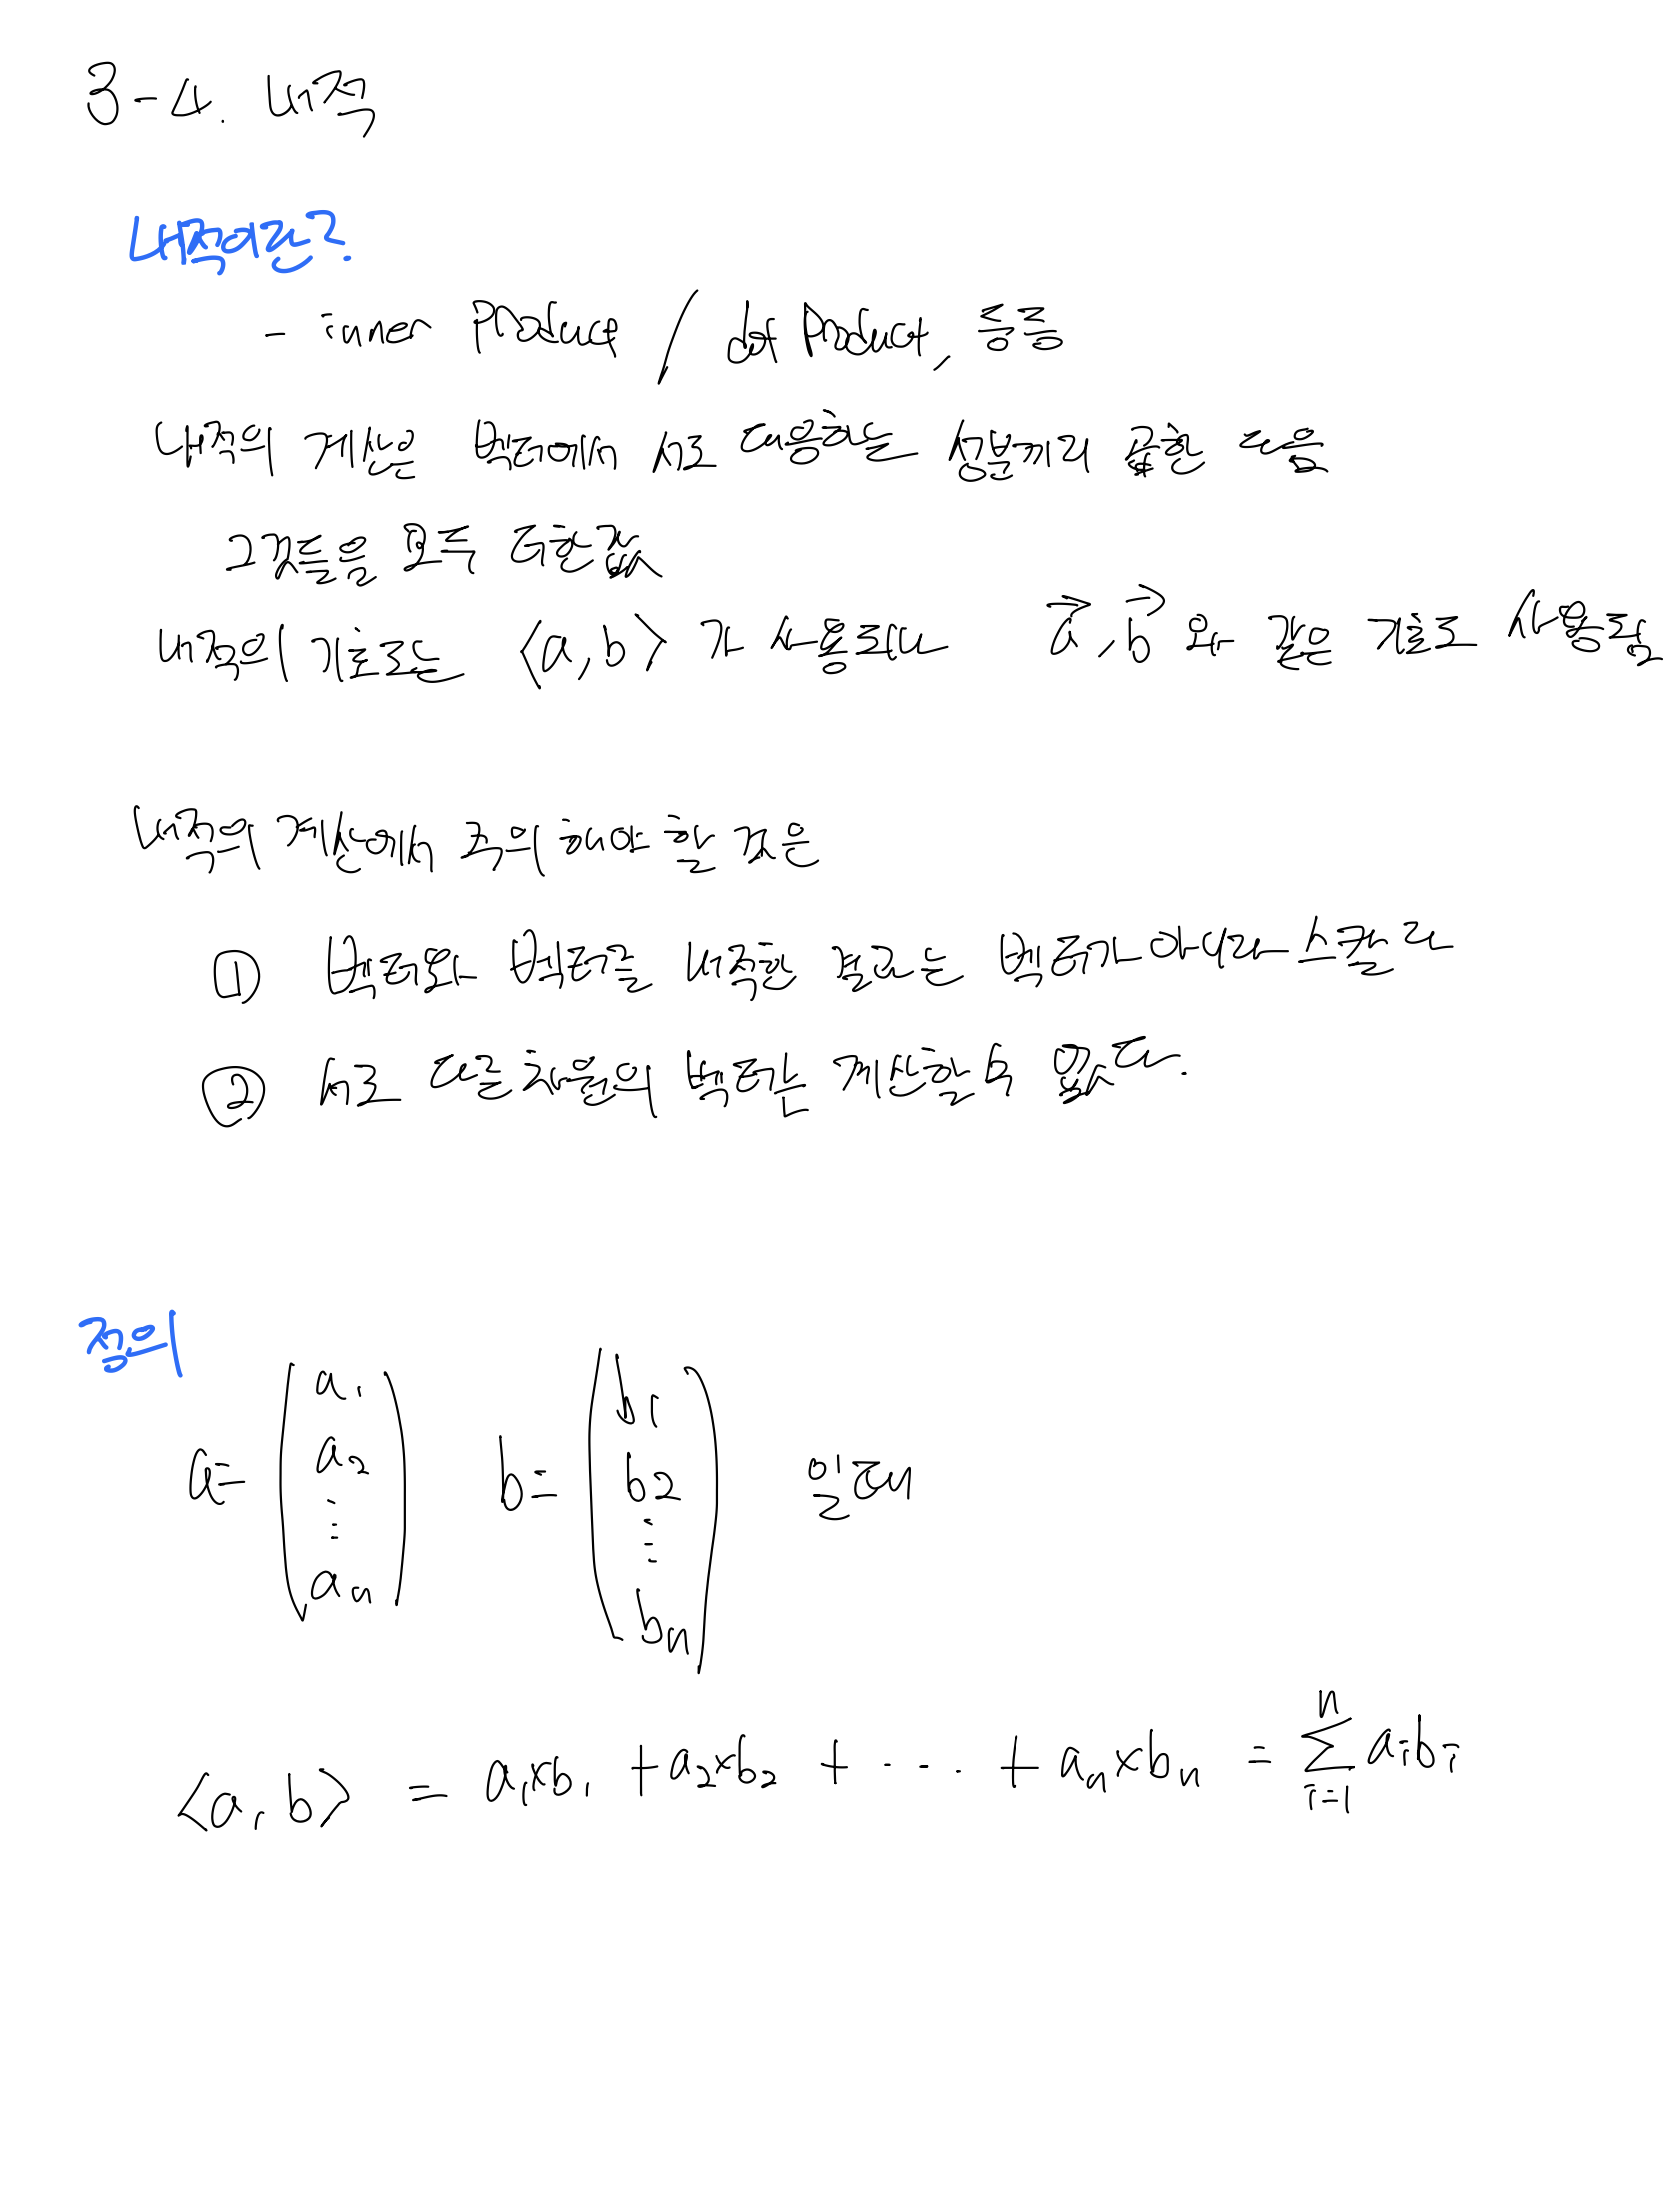 3-4. 내적
내적이란?
- inner Product / dot Product, 등등
내적의 계산은 벡터에서 서로 대응하는 성분끼리 곱한 다음
그것들을 모두 더한값
내적의 기호로는 <a, b> 가 사용되나 a⃗, b⃗ 와 같은 기호로 사용됨
내적의 계산에서 주의 해야 할 것은
① 벡터와 벡터를 내적한 결과는 벡터가 아니라 스칼라
② 서로 다른 차원의 벡터는 계산할 수 없다.
정의
a= (a₁ a₂ ⋮ aₙ) b= (b₁ b₂ ⋮ bₙ) 일때
<a, b> = a₁×b₁ + a₂×b₂ + ... + aₙ×bₙ = ∑ⁿᵢ₌₁ aᵢbᵢ